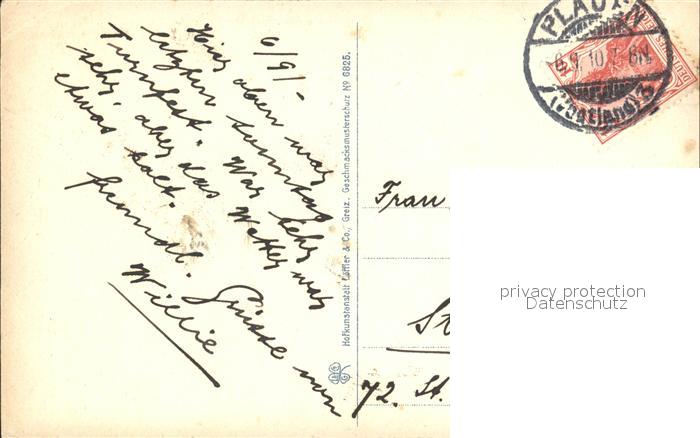 6/9/-
Hier oben war
letzten Sonntag
Turnfest. War sehr
sehr, aber das Wetter war
etwas kalt.
freundl. Grüsse von
Willie
Hofkunstanstalt Löffler & Co., Greiz. Geschmacksmusterschutz No 6825.
PLAUEN
6.9.10. 7-8N.
(Vogtland) 3
Frau
St
72. St.
privacy protection
Datenschutz